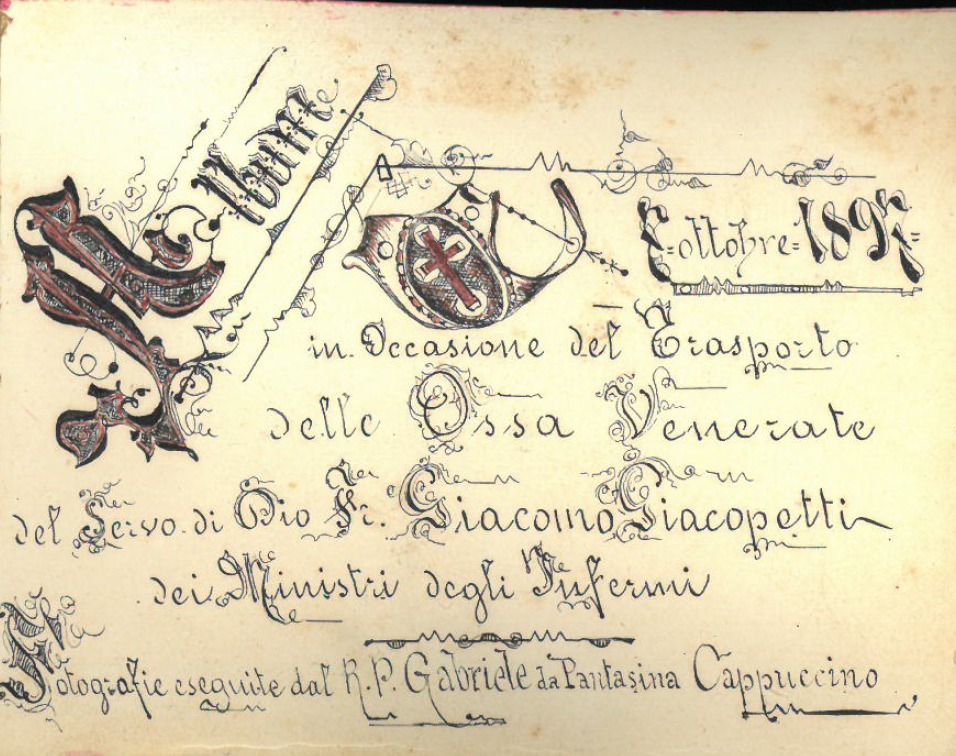 Album
ottobre=1897=
in Occasione del Trasporto
delle Ossa Venerate
del Servo di Dio Fr. Giacomo Giacopetti
dei Ministri degli Infermi
Fotografie eseguite dal R.P. Gabriele da Pantasina Cappuccino